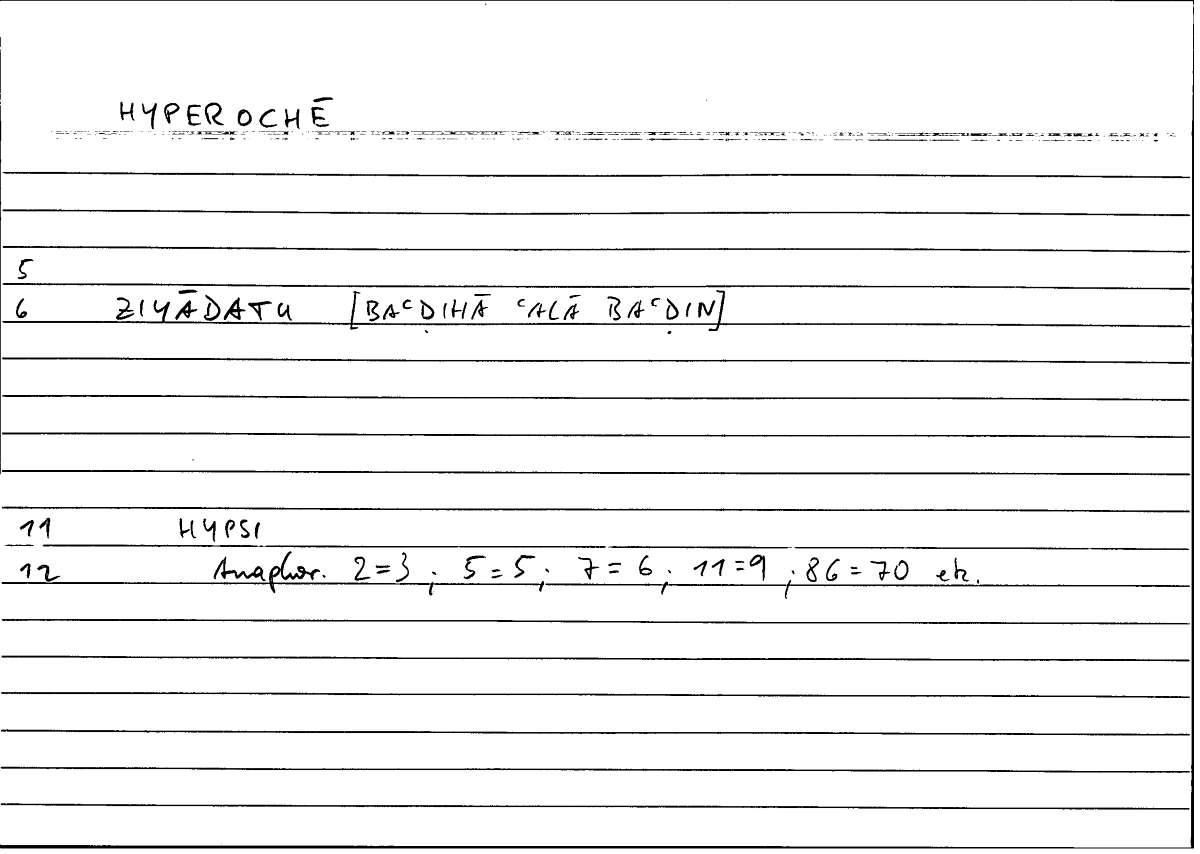 HYPEROCHĒ
5
6 ZIYĀDATU [BAʿḌIHĀ ʿALĀ BAʿḌIN]
11 HYPSI
12 Anaphor. 2=3; 5=5; 7=6; 11=9; 86=70 etc.